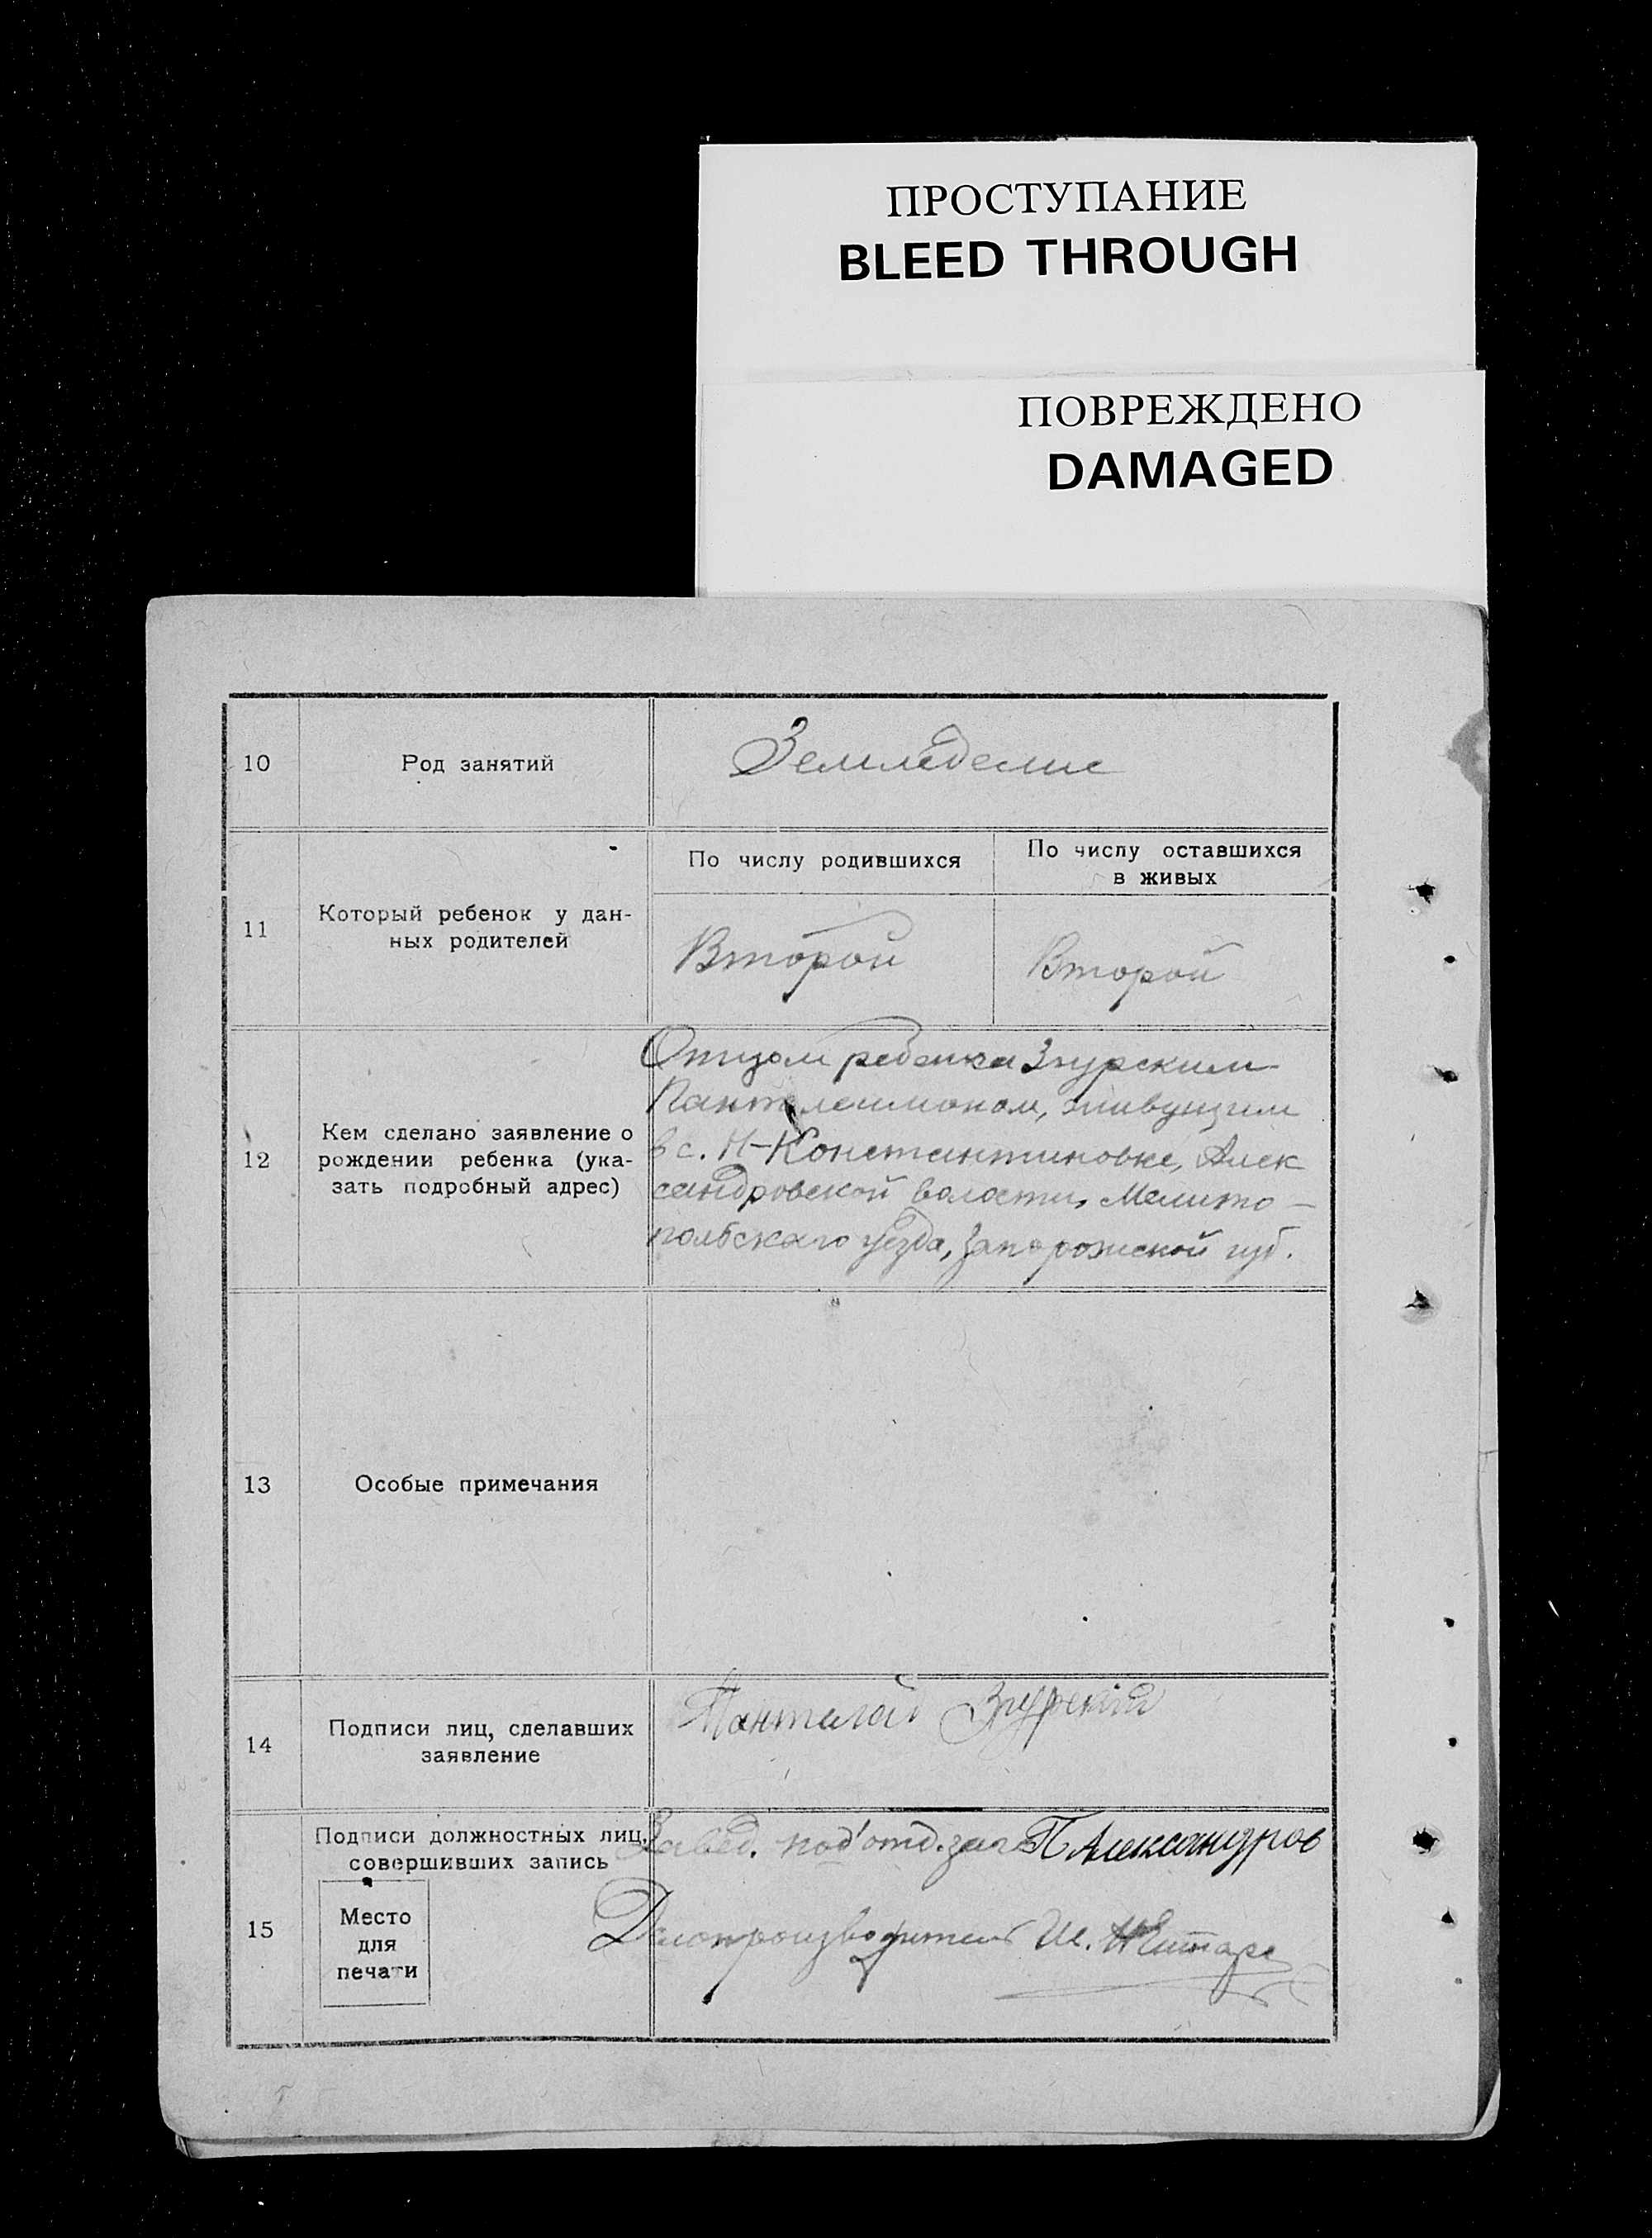 ПРОСТУПАНИЕ
BLEED THROUGH
ПОВРЕЖДЕНО
DAMAGED
10
Род занятий
Земледелие
11
Который ребенок у дан-
ных родителей
По числу родившихся
По числу оставшихся
в живых
Второй
Второй
12
Кем сделано заявление о
рождении ребенка (ука-
зать подробный адрес)
Отцом ребенка Згурским
Пантелеимоном, живущим
в с. Н-Константиновке, Алек
сандровской волости, Мелито-
польскаго уезда, Запорожской губ.
13
Особые примечания
14
Подписи лиц, сделавших
заявление
Згурский
15
Подписи должностных лиц,
совершивших запись
Место
для
печати
Завед. под'отд. П Александров
Делопроизводитель